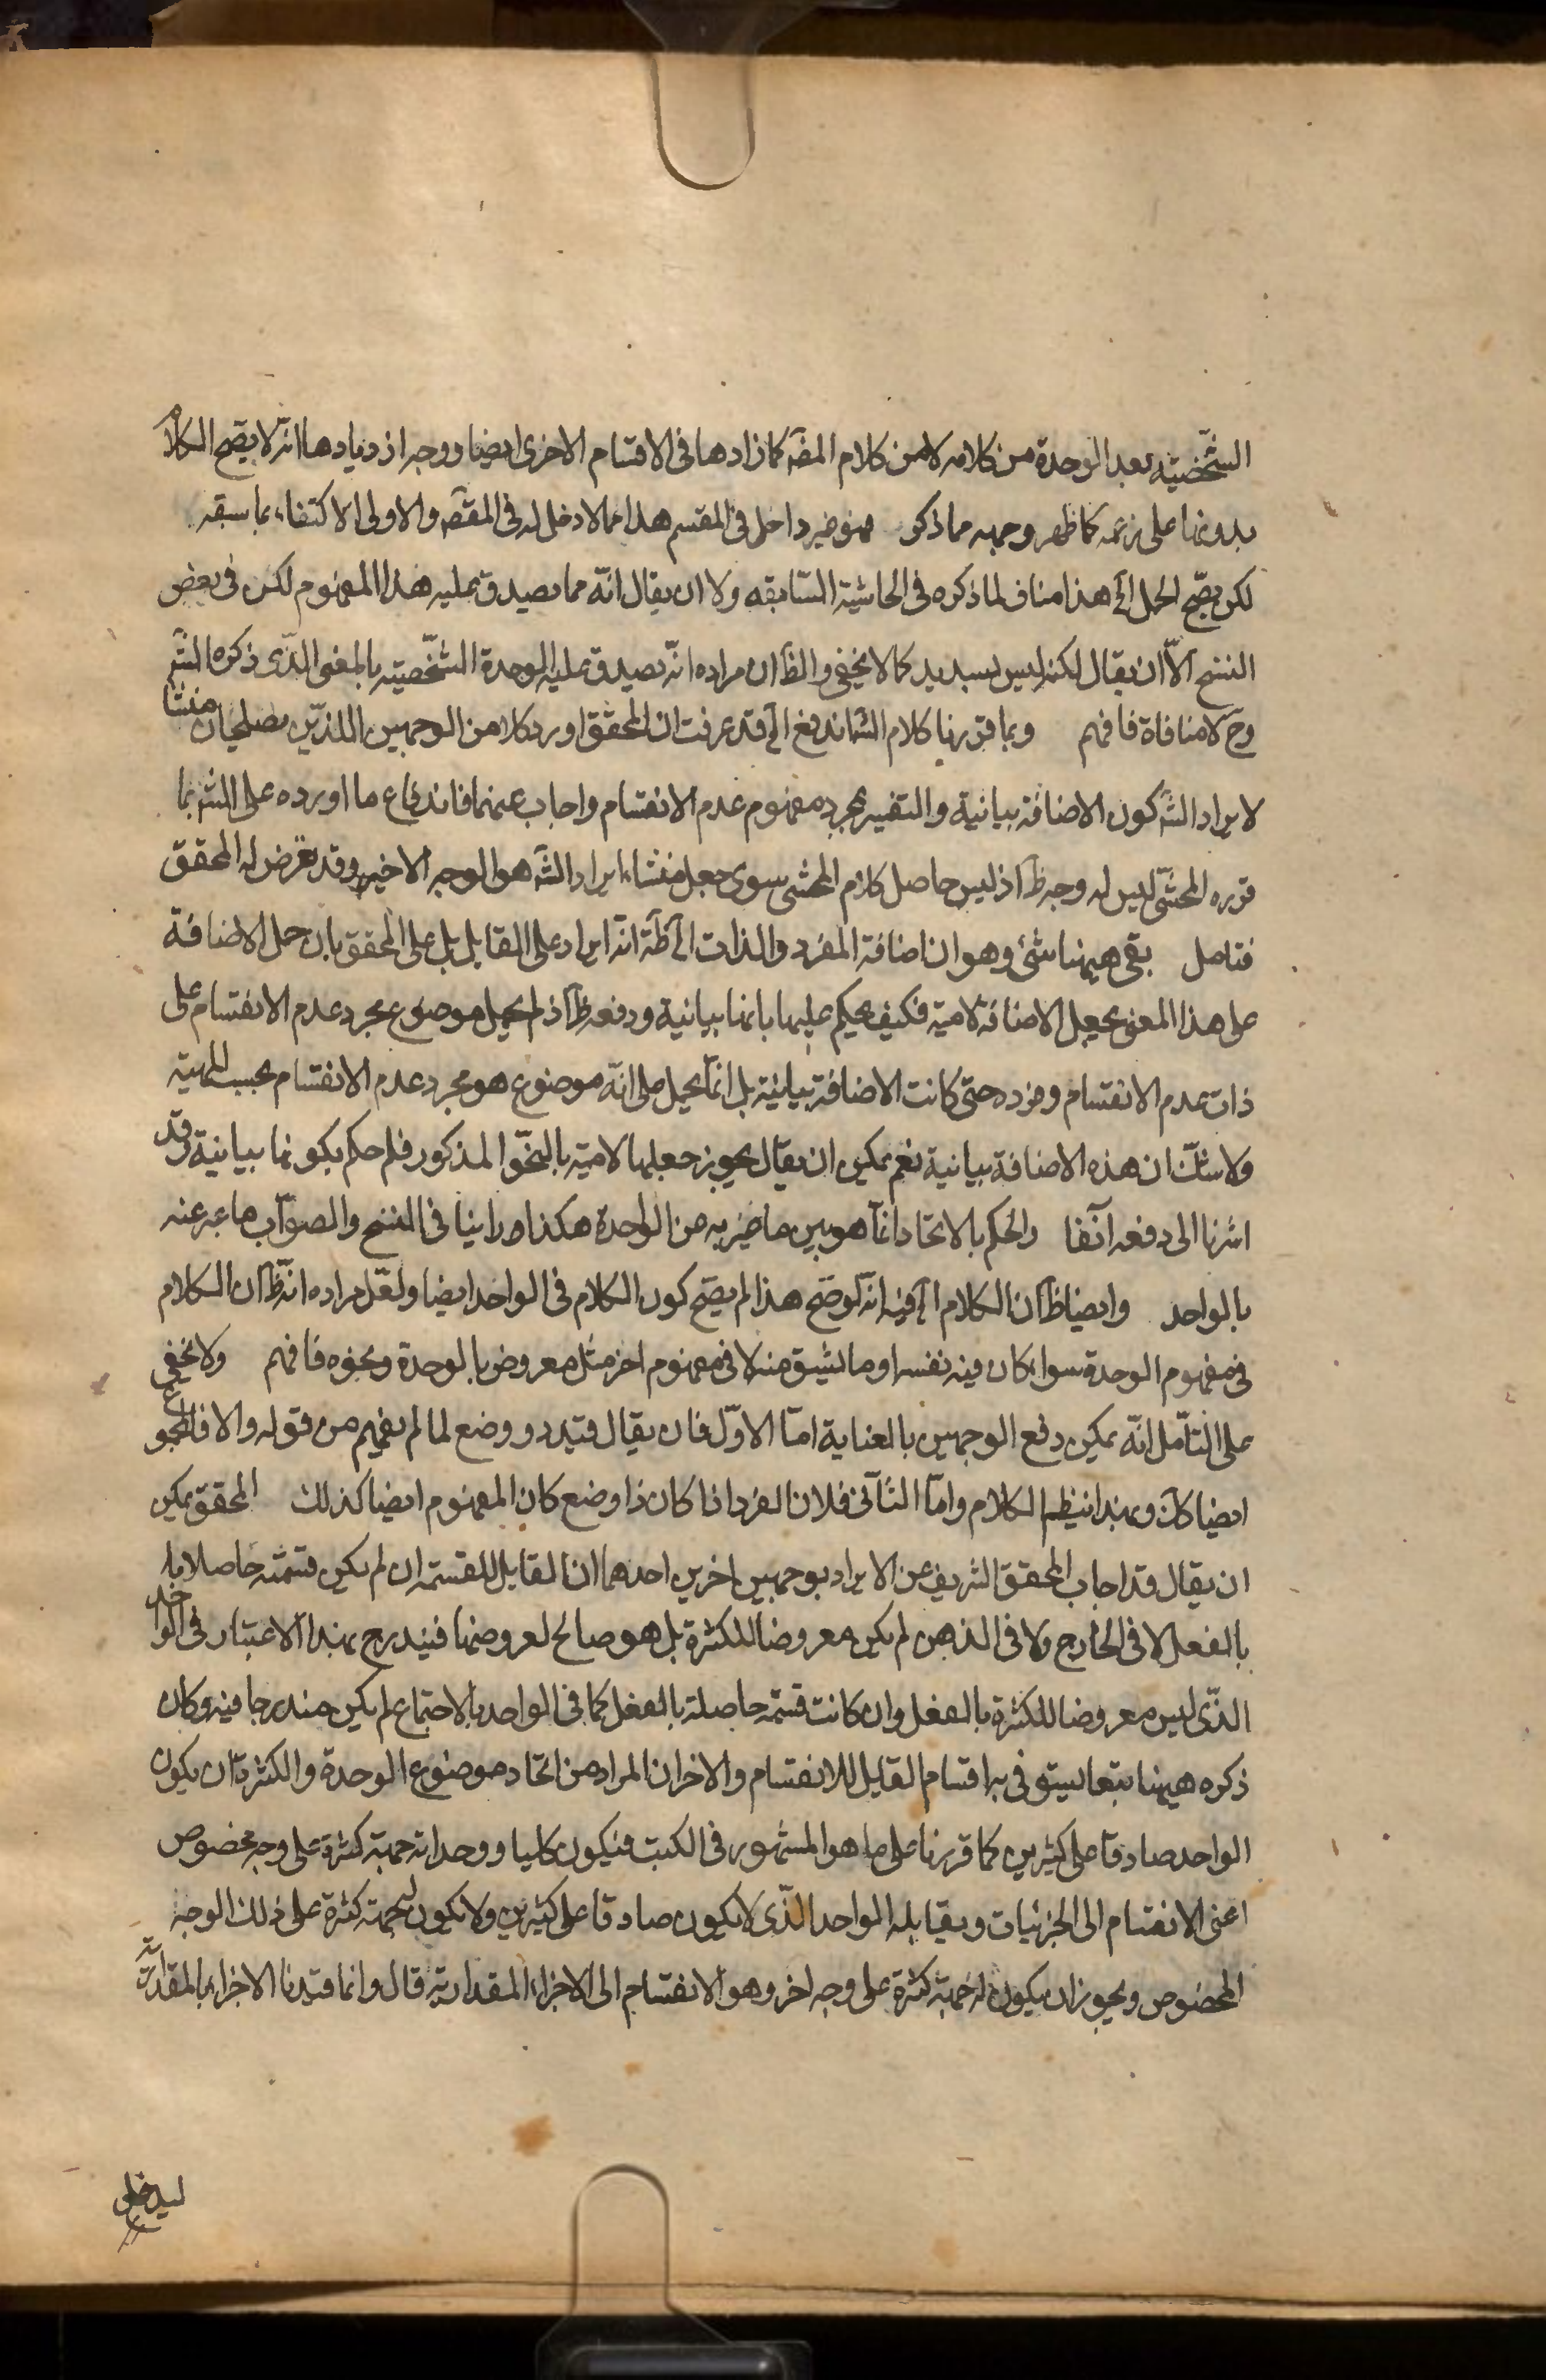 الشّخصّية بعد الوحدة من كلامه لا من كلام المصّ كما زادها فى الاقسام الاخرى ايضا ووجه ازديادها انّه لا يصّح الكلام
بدونها على زعمه كما ظهر وجهه مما ذكر فهو غير داخل فى المقسم هذا مما لا دخل له فى المقصّ والاولى الاكتفاء بما سبقه
لكن يصّح الحمل الخ هذا مناف لما ذكره فى الحاشية السّابقه ولا ان يقال انّه مما يصدق عليه هذا المفهوم لكن فى بعض
النسخ الاّ ان يقال لكنه ليس بسديد كما لا يخفى والظّ ان مراده انّه يصدق عليه الوحدة الشّخصّية بالمعنى الذّى ذكره الشّ
وحّ لا منافاة فافهم وبما قررنا كلام الشّ اندفع الخ قد عرفت ان المحقق اورد كلا من الوجهين اللذّين يصلحان منشا
لايراد الشّ كون الاضافة بيانية والتفسير بمجرد مفهوم عدم الانقسام واجاب عنهما فاندفاع ما اورده على الشّ بما
قرره المحشّى ليس له وجه ظّ اذ ليس حاصل كلام المحشى سوى جعل منشاء ايراد الشّ هو الوجه الاخير وقد تعرض له المحقق
فتامل بقى ههنا شئ وهو ان اضافة المفرد والذات الخ ظّ انّه ايراد على القايل بل على المحقق بان حمل الاضافة
على هذا المعنى يجعل الاضافة لامية فكيف يحكم عليها بانها بيانية ودفعه ظّ اذ لم يحمل موضوع مجرد عدم الانقسام على
ذات عدم الانقسام وفرده حتى كانت الاضافة بيانية بل انّما يحمل على انّه موضوع هو مجرد عدم الانقسام بحسب المهية
ولا شكّ ان هذه الاضافة بيانية نعم يمكن ان يقال يجوز جعلها لامية بالنحّو المذكور فلم حكم بكونها بيانية وقد
اشرنا الى دفعه آنفا والحكم بالاتحاد انّما هو بين ما ضربه من الواحدة هكذا وراينا فى النسخ والصوّاب ما عبر عنه
بالواحد وايضا ظّ ان الكلام الخ فيه انّه لو صّح هذا لم يصّح كون الكلام فى الواحد ايضا ولعّل مراده انّه ظّ ان الكلام
فى مفهوم الوحدة سواء كان فيه نفسه او ما يشتق منه لا فى مفهوم اخر مثل معروض بالوحدة ونحوه فافهم ولا يخفى
على التاّمل انّه يمكن دفع الوجهين بالعناية امّا الاوّل فان يقال قيد ذو وضع لما لم يفهم من قوله والا فالمجموع
ايضا كك وبهذا ينظم الكلام وامّا الثّانى فلان الفرد اذا كان ذا وضع كان المفهوم ايضا كذلك المحقق يمكن
ان يقال قد اجاب المحقق الشريف عن الايراد بوجهين اخرين احدهما ان القابل للقسمة ان لم يكن قسمته حاصلا
بالفعل لا فى الخارج ولا فى الذهن لم يكن معروضا للكثرة بل هو صالح لعروضها فيندرج بهذا الاعتبار فى الواحد
الذّى ليس معروضا للكثرة بالفعل وان كانت قسمة حاصلة بالفعل كما فى الواحد بالاجتماع لم يكن مندرجا فيه وكان
ذكره ههنا تبعا ليستوفى به اقسام القابل للانقسام والاخر ان المراد من اتحاد موضوع الوحدة والكثرة ان يكون
الواحد صادقا على كثيرين كما قررنا على ما هو المشهور فى الكتب فيكون كليا ووحداته جهة كثرة على وجه مخصوص
اعنى الانقسام الى الجزئيات ويقابله الواحد الذّى لا يكون صادقا على كثيرين ولا يكون له جهة كثرة على ذلك الوجه
المخصوص ويجوز ان يكون له جهة كثرة على وجه اخر وهو الانقسام الى الاجزاء المقدارية قال وانما قيدنا الاجزاء بالمقدارية
ليدخل